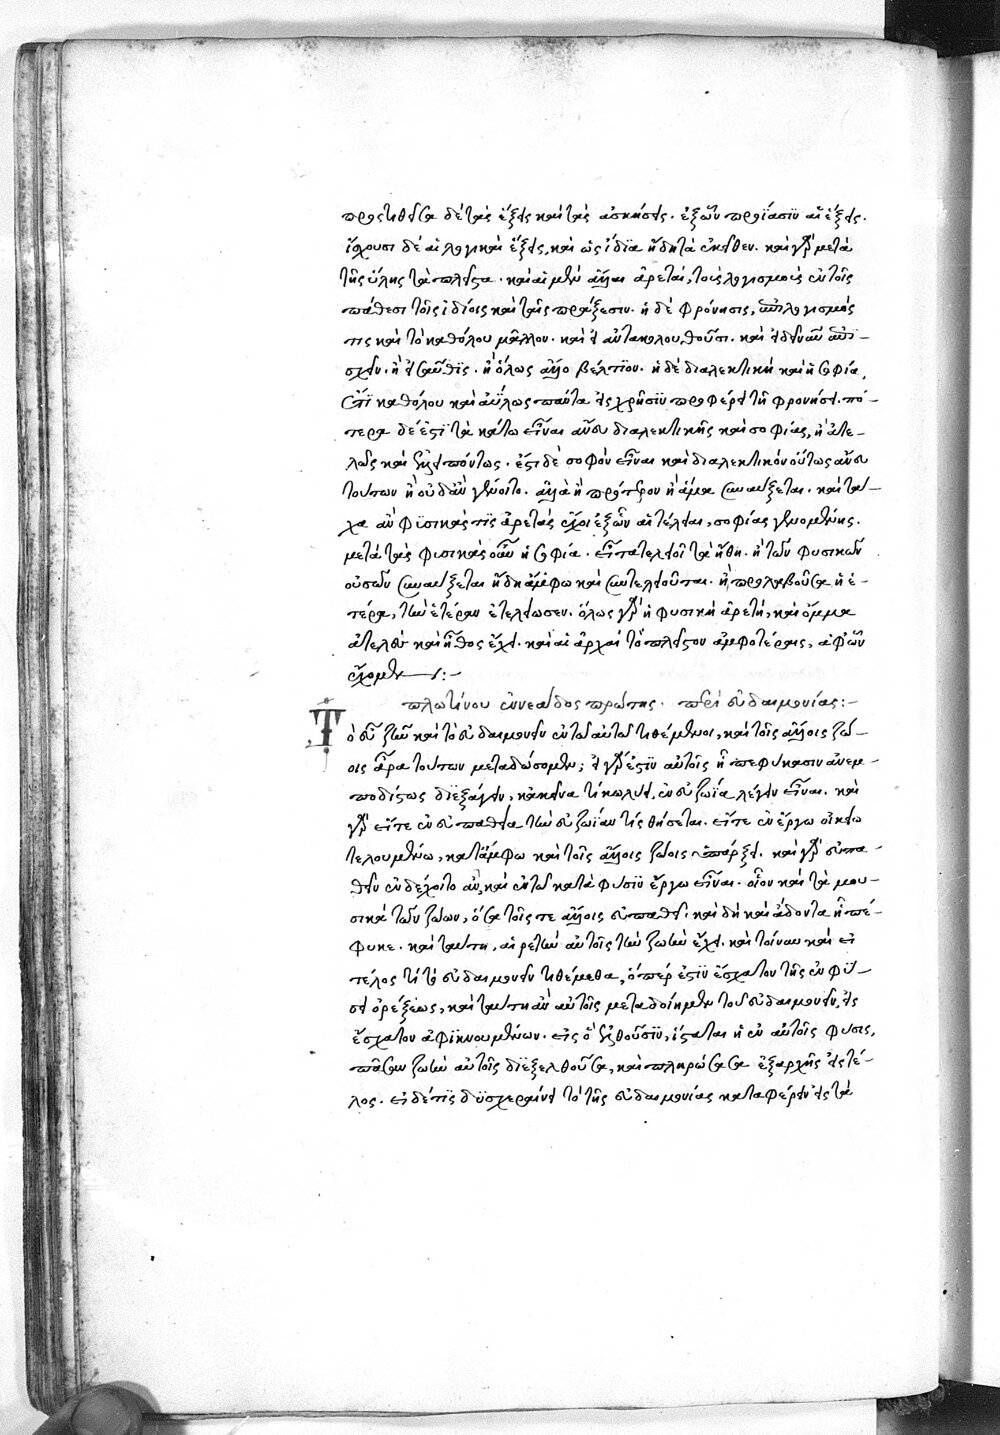 προστιθεῖσα δὲ τὰς ἕξεις καὶ τὰς ἀσκήσεις. ἐξ ὧν προΐασιν αἱ ἕξεις.
ἴσχουσι δὲ αἱ λογικαὶ ἕξεις, καὶ ὡς ἴδια ἤδη τὰ ἐκεῖθεν. καὶ γὰρ μετὰ
τῆς ὕλης τὰ πλεῖστα. καὶ αἱ μὲν ἄλλαι ἀρεταί, τοὺς λογισμοὺς ἐν τοῖς
πάθεσι τοῖς ἰδίοις καὶ ταῖς πράξεσιν. ἡ δὲ φρόνησις, ἐπιλογισμός
τις καὶ τὸ καθόλου μᾶλλον. καὶ εἰ ἀντακολουθοῦσι. καὶ εἰ δεῖ νῦν ἐπι-
σχεῖν. ἢ εἰσαῦθις. ἢ ὅλως ἄλλο βέλτιον. ἡ δὲ διαλεκτικὴ καὶ ἡ σοφία,
ἔτι καθόλου καὶ ἀΰλως πάντα εἰς χρῆσιν προφέρει τῇ φρονήσει. πό-
τερα δέ ἐστι τὰ κάτω εἶναι ἄνευ διαλεκτικῆς καὶ σοφίας, ἢ ἀτε-
λῶς καὶ ἐλλειπόντως. ἔστι δὲ σοφὸν εἶναι καὶ διαλεκτικὸν οὕτως ἄνευ
τούτων ἢ οὐδ' ἂν γένοιτο. ἀλλὰ ἢ πρότερον ἢ ἅμα συναύξεται. καὶ τά-
χα ἂν φυσικάς τις ἀρετὰς ἔχοι ἐξ ὧν αἱ τέλειαι, σοφίας γενομένης.
μετὰ τὰς φυσικὰς οὖν ἡ σοφία. εἶτα τελειοῖ τὰ ἤθη. ἢ τῶν φυσικῶν
οὐσῶν συναύξεται ἤδη ἄμφω καὶ συντελειοῦται. ἢ προλαβοῦσα ἡ ἑ-
τέρα, τὴν ἑτέραν ἐτελείωσεν. ὅλως γὰρ ἡ φυσικὴ ἀρετὴ, καὶ ὄμμα
ἀτελὲς καὶ ἦθος ἔχει. καὶ αἱ ἀρχαὶ τὸ πλεῖστον ἀμφοτέραις, ἀφ' ὧν
ἔχομεν:-
πλωτίνου ἐννεάδος πρώτης. περὶ εὐδαιμονίας:-
Τὸ εὖ ζῆν καὶ τὸ εὐδαιμονεῖν ἐν τῷ αὐτῷ τιθέμενοι, καὶ τοῖς ἄλλοις ζώ-
οις ἆρα τούτων μεταδώσομεν; εἰ γὰρ ἔστιν αὐτοῖς ᾗ πεφύκασιν ἀνεμ-
ποδίστως διεξάγειν, κἀκεῖνα τί κωλύει ἐν εὐζωίᾳ λέγειν εἶναι. καὶ
γὰρ εἴτε ἐν εὐπαθείᾳ τὴν εὐζωίαν τίς θήσεται. εἴτε ἐν ἔργῳ οἰκείῳ
τελουμένῳ, κατ' ἄμφω καὶ τοῖς ἄλλοις ζώοις ὑπάρξει. καὶ γὰρ εὐπα-
θεῖν ἐνδέχοιτο ἂν, καὶ ἐν τῷ κατὰ φύσιν ἔργῳ εἶναι. οἷον καὶ τὰ μου-
σικὰ τῶν ζώων, ὅσα τοῖς τε ἄλλοις εὐπαθεῖ. καὶ δὴ καὶ ἄδοντα ᾗ πέ-
φυκε. καὶ ταύτῃ, αἱρετὴν αὐτοῖς τὴν ζωὴν ἔχει. καὶ τοίνυν καὶ εἰ
τέλος τι τὸ εὐδαιμονεῖν τιθέμεθα, ὅπερ ἐστὶν ἔσχατον τῆς ἐν φύ-
σει ὀρέξεως, καὶ ταύτῃ ἂν αὐτοῖς μεταδοίημεν τοῦ εὐδαιμονεῖν, εἰς
ἔσχατον ἀφικνουμένων. εἰς ὃ ἐλθοῦσιν, ἵσταται ἡ ἐν αὐτοῖς φύσις,
πᾶσαν ζωὴν αὐτοῖς διεξελθοῦσα, καὶ πληρώσασα ἐξ ἀρχῆς εἰς τέ-
λος. εἰ δέ τις δυσχεραίνει τὸ τῆς εὐδαιμονίας καταφέρειν εἰς τὰ